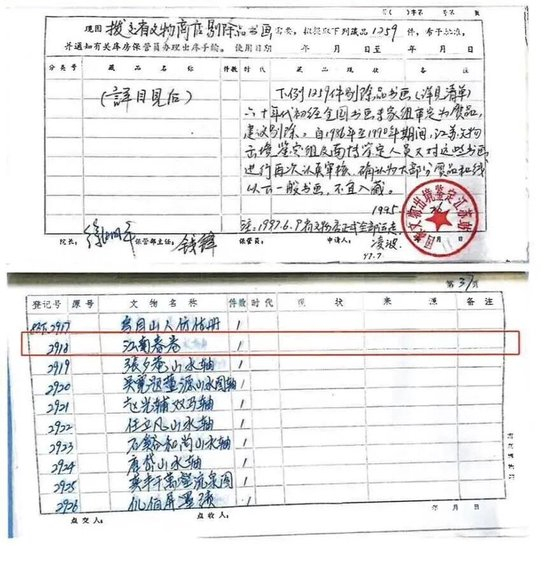 现因拨交省文物商店剔除品书画需要,拟提取下列藏品1259件,希予批准。
并通知有关库房保管员办理出库手续。使用日期 年 月 日至 年 月 日
分类号 藏品名称 件数 时代 藏品现状 备注
(詳目見后)
下列1259件剔除品书画(详见清单)
六十年代初经全国书画专家组审定为废品,
建议剔除。自1986年至1990年期间,江苏文物
出境鉴定组及南博鉴定人员又对这些书画
进行再次认真审核,确认为大部分废品和线
以下一般书画,不宜入藏。
1995
国家文物出境鉴定江苏站
注:1997.6.9
凌波
97.7
院长: 徐湖平 保管部主任: 钱锋 保管员: 申请人: 年 月 日
第 37 页
登记号 原号 文物名称 件数 时代 现状 来源 备注
2917 1
2918 江南春卷 1
2919 張夕菴山水轴 1
2920 山水图轴 1
2921 赵光辅双马轴 1
2922 任立凡山水轴 1
2923 石谿和尚山水轴 1
2924 唐岱山水轴 1
2925 流泉图 1
2926 仉伯屏墨 1
点交人: 点收人: 年 月 日